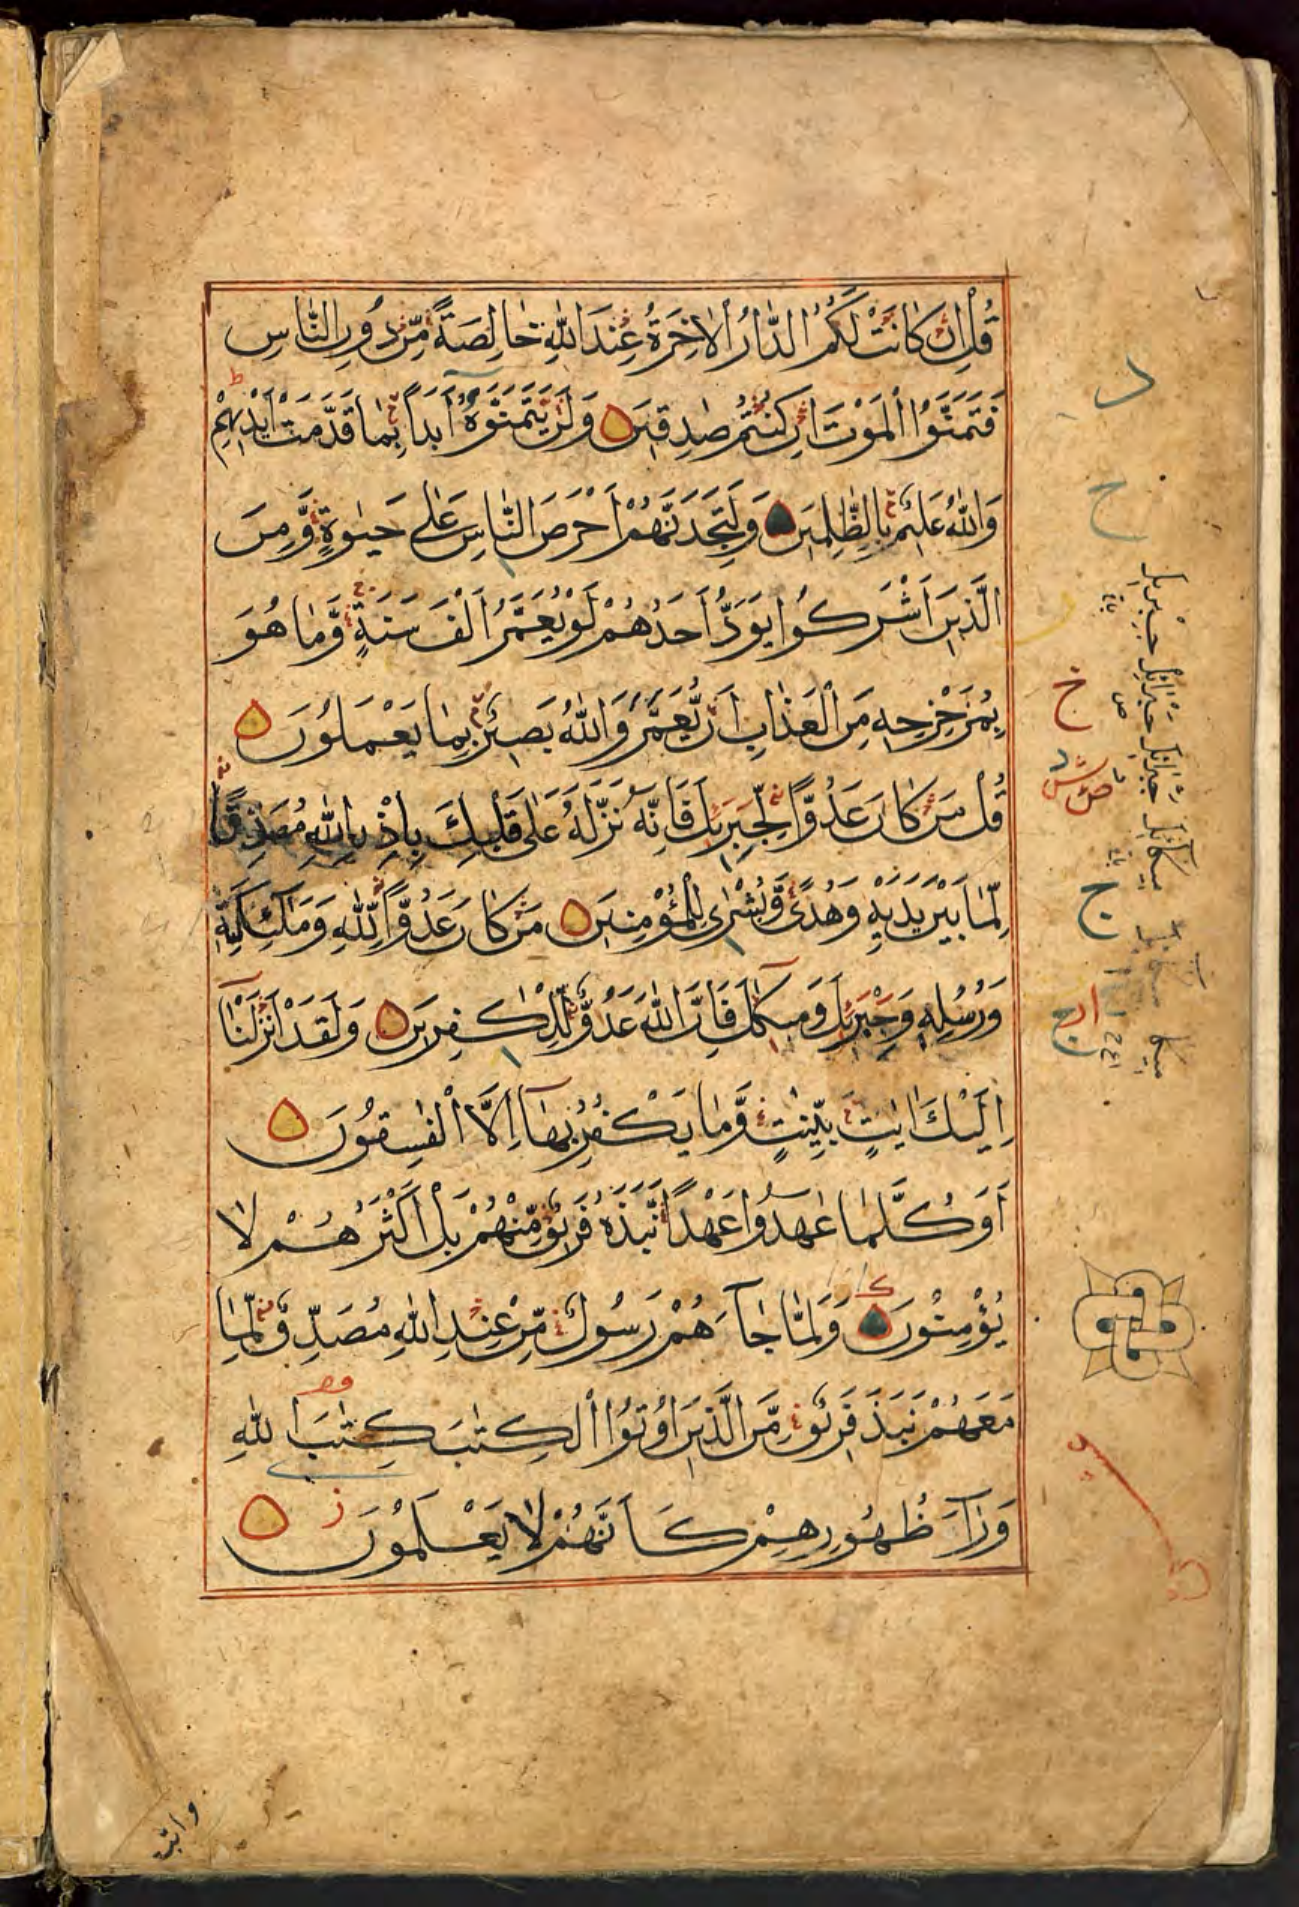 قُلْ اِنْ كَانَتْ لَكُمُ الدَّارُ الْاٰخِرَةُ عِنْدَ اللّٰهِ خَالِصَةً مِّنْ دُوْنِ النَّاسِ
فَتَمَنَّوُا الْمَوْتَ اِنْ كُنْتُمْ صٰدِقِيْنَ وَلَنْ يَّتَمَنَّوْهُ اَبَدًا بِمَا قَدَّمَتْ اَيْدِيْهِمْ
وَاللّٰهُ عَلِيْمٌ بِالظّٰلِمِيْنَ وَلَتَجِدَنَّهُمْ اَحْرَصَ النَّاسِ عَلٰى حَيٰوةٍ وَّمِنَ
الَّذِيْنَ اَشْرَكُوْا يَوَدُّ اَحَدُهُمْ لَوْ يُعَمَّرُ اَلْفَ سَنَةٍ وَّمَا هُوَ
بِمُزَحْزِحِهٖ مِنَ الْعَذَابِ اَنْ يُّعَمَّرَ وَاللّٰهُ بَصِيْرٌ بِمَا يَعْمَلُوْنَ
قُلْ مَنْ كَانَ عَدُوًّا لِّجِبْرِيْلَ فَاِنَّهٗ نَزَّلَهٗ عَلٰى قَلْبِكَ بِاِذْنِ اللّٰهِ مُصَدِّقًا
لِّمَا بَيْنَ يَدَيْهِ وَهُدًى وَّبُشْرٰى لِلْمُؤْمِنِيْنَ مَنْ كَانَ عَدُوًّا لِّلّٰهِ وَمَلٰٓئِكَتِهٖ
وَرُسُلِهٖ وَجِبْرِيْلَ وَمِيْكٰىلَ فَاِنَّ اللّٰهَ عَدُوٌّ لِّلْكٰفِرِيْنَ وَلَقَدْ اَنْزَلْنَآ
اِلَيْكَ اٰيٰتٍ بَيِّنٰتٍ وَّمَا يَكْفُرُ بِهَآ اِلَّا الْفٰسِقُوْنَ
اَوَكُلَّمَا عٰهَدُوْا عَهْدًا نَّبَذَهٗ فَرِيْقٌ مِّنْهُمْ بَلْ اَكْثَرُهُمْ لَا
يُؤْمِنُوْنَ وَلَمَّا جَآءَهُمْ رَسُوْلٌ مِّنْ عِنْدِ اللّٰهِ مُصَدِّقٌ لِّمَا
مَعَهُمْ نَبَذَ فَرِيْقٌ مِّنَ الَّذِيْنَ اُوْتُوا الْكِتٰبَ كِتٰبَ اللّٰهِ
وَرَآءَ ظُهُوْرِهِمْ كَاَنَّهُمْ لَا يَعْلَمُوْنَ
واتبـ